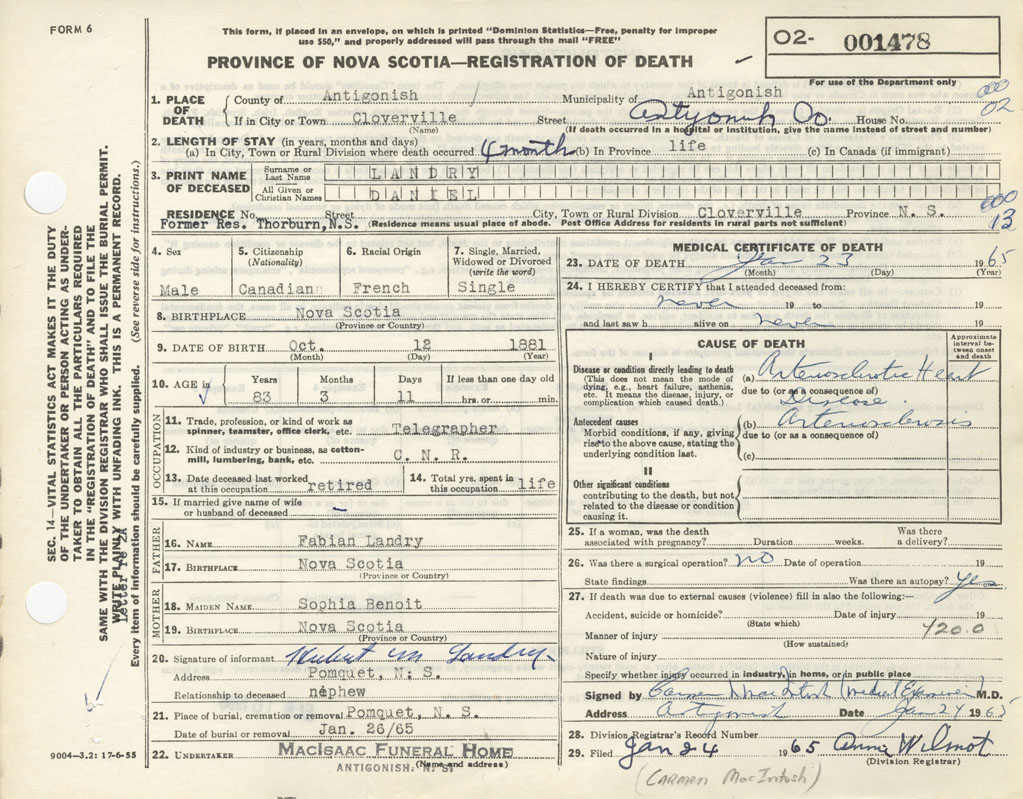 FORM 6
This form, if placed in an envelope, on which is printed "Dominion Statistics—Free, penalty for improper
use $50," and properly addressed will pass through the mail "FREE"
PROVINCE OF NOVA SCOTIA—REGISTRATION OF DEATH
02- 001478
For use of the Department only
1. PLACE OF DEATH
County of Antigonish Municipality of Antigonish
If in City or Town Cloverville Street Antigonish Co. House No.
(Name) (If death occurred in a hospital or institution, give the name instead of street and number)
00
02
2. LENGTH OF STAY (in years, months and days)
(a) In City, Town or Rural Division where death occurred 4 month (b) In Province life (c) In Canada (if immigrant)
3. PRINT NAME OF DECEASED
Surname or Last Name LANDRY
All Given or Christian Names DANIEL
RESIDENCE No. Street City, Town or Rural Division Cloverville Province N. S.
Former Res. Thorburn, N.S. (Residence means usual place of abode. Post Office Address for residents in rural parts not sufficient)
000
13
4. Sex
Male
5. Citizenship
(Nationality)
Canadian
6. Racial Origin
French
7. Single, Married,
Widowed or Divorced
(write the word)
Single
8. BIRTHPLACE Nova Scotia
(Province or Country)
9. DATE OF BIRTH Oct. 12 1881
(Month) (Day) (Year)
10. AGE in
Years Months Days If less than one day old
83 3 11 hrs. or min.
OCCUPATION
11. Trade, profession, or kind of work as
spinner, teamster, office clerk, etc. Telegrapher
12. Kind of industry or business, as cotton-
mill, lumbering, bank, etc. C. N. R.
13. Date deceased last worked
at this occupation retired
14. Total yrs. spent in
this occupation life
15. If married give name of wife
or husband of deceased -
FATHER
16. NAME Fabian Landry
17. BIRTHPLACE Nova Scotia
(Province or Country)
MOTHER
18. MAIDEN NAME Sophia Benoit
19. BIRTHPLACE Nova Scotia
(Province or Country)
20. Signature of informant Hubert M Landry
Address Pomquet, N. S.
Relationship to deceased nephew
21. Place of burial, cremation or removal Pomquet, N. S.
Date of burial or removal Jan. 26/65
22. UNDERTAKER MACISAAC FUNERAL HOME
ANTIGONISH, N. S. (Name and address)
MEDICAL CERTIFICATE OF DEATH
23. DATE OF DEATH Jan 23 1965
(Month) (Day) (Year)
24. I HEREBY CERTIFY that I attended deceased from:
never 19 to 19
and last saw h alive on never 19
CAUSE OF DEATH
Approximate interval between onset and death
I
Disease or condition directly leading to death
(This does not mean the mode of
dying, e.g., heart failure, asthenia,
etc. It means the disease, injury, or
complication which caused death.)
(a) Arteriosclerotic Heart
due to (or as a consequence of)
Disease.
Antecedent causes
Morbid conditions, if any, giving
rise to the above cause, stating the
underlying condition last.
(b) Arteriosclerosis
due to (or as a consequence of)
(c)
II
Other significant conditions
contributing to the death, but not
related to the disease or condition
causing it.
25. If a woman, was the death
associated with pregnancy? Duration weeks. Was there a delivery?
26. Was there a surgical operation? NO Date of operation 19
State findings Was there an autopsy? Yes
27. If death was due to external causes (violence) fill in also the following:—
Accident, suicide or homicide? Date of injury 19
(State which)
420.0
Manner of injury
(How sustained)
Nature of injury
Specify whether injury occurred in industry, in home, or in public place
Signed by Carmen MacIntosh (Medical Examiner) M.D.
Address Antigonish Date Jan 24 1965
28. Division Registrar's Record Number
29. Filed Jan 24 1965 Anne Wilmot
(Division Registrar)
(CARMEN MacIntosh)
SEC. 14—VITAL STATISTICS ACT MAKES IT THE DUTY
OF THE UNDERTAKER OR PERSON ACTING AS UNDER-
TAKER TO OBTAIN ALL THE PARTICULARS REQUIRED
IN THE "REGISTRATION OF DEATH" AND TO FILE THE
SAME WITH THE DIVISION REGISTRAR WHO SHALL ISSUE THE BURIAL PERMIT.
WRITE PLAINLY WITH UNFADING INK. THIS IS A PERMANENT RECORD.
Letter re 2A
Every item of information should be carefully supplied. (See reverse side for instructions.)
9004-3.2: 17-6-55